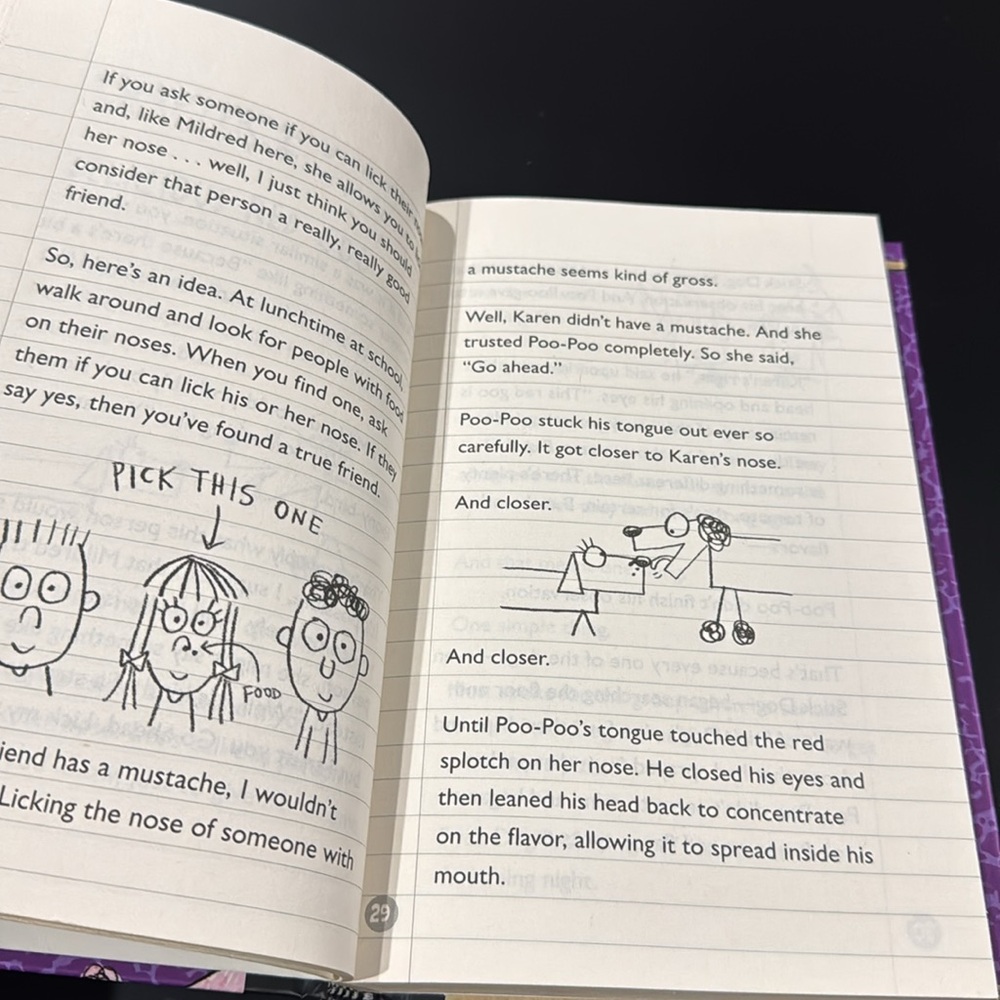 If you ask someone if you can lick their
and, like Mildred here, she allows you to
her nose . . . well, I just think you should
consider that person a really, really good
friend.
So, here's an idea. At lunchtime at school
walk around and look for people with food
on their noses. When you find one, ask
them if you can lick his or her nose. If they
say yes, then you've found a true friend.
PICK THIS ONE
FOOD
has a mustache, I wouldn't
Licking the nose of someone with
29
a mustache seems kind of gross.
Well, Karen didn't have a mustache. And she
trusted Poo-Poo completely. So she said,
“Go ahead.”
Poo-Poo stuck his tongue out ever so
carefully. It got closer to Karen's nose.
And closer.
And closer.
Until Poo-Poo's tongue touched the red
splotch on her nose. He closed his eyes and
then leaned his head back to concentrate
on the flavor, allowing it to spread inside his
mouth.